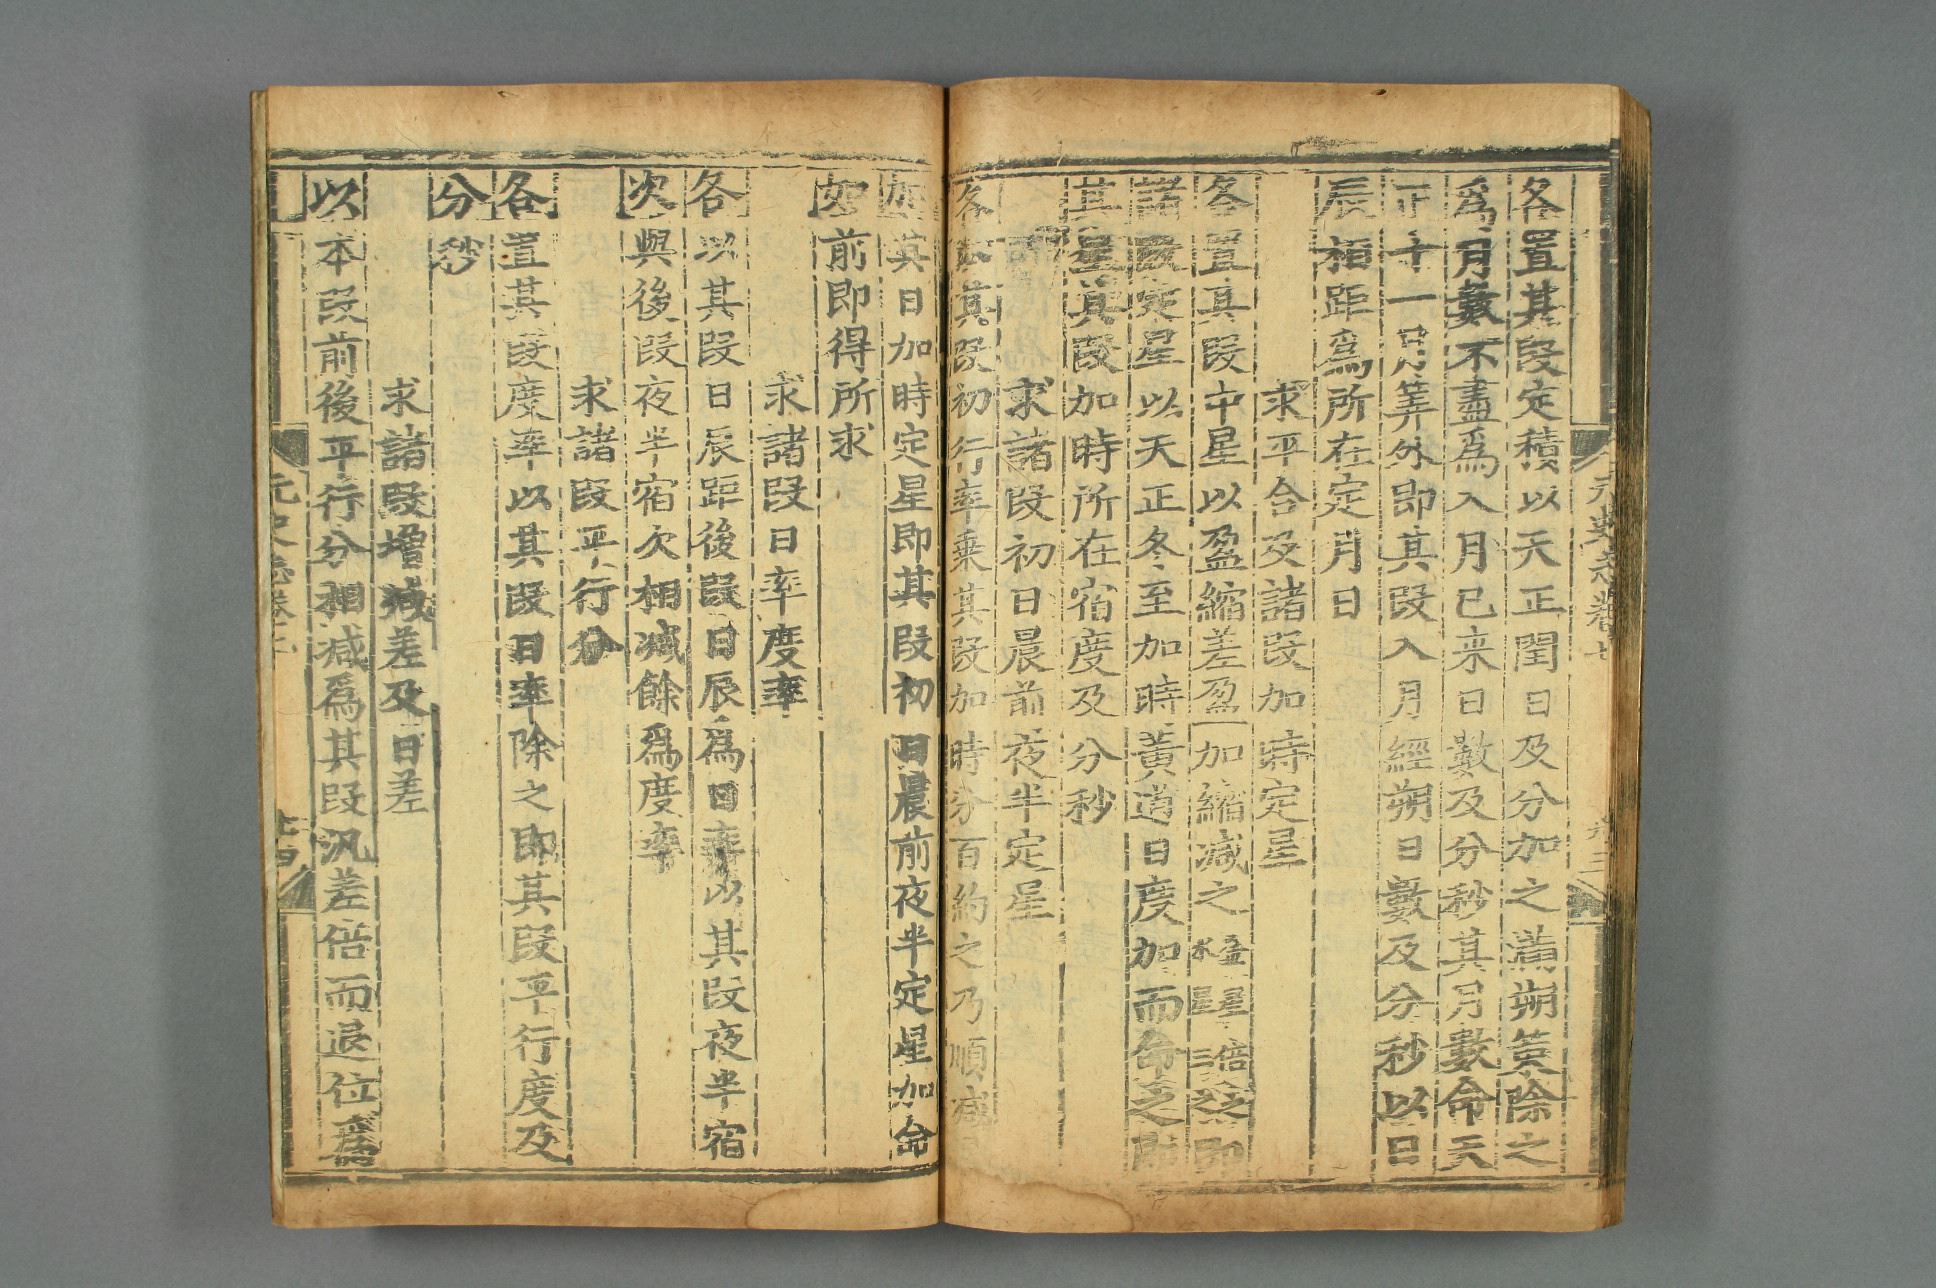 元史志卷七
各置其段定積以天正閏日及分加之滿朔策除之
爲月數不盡爲入月已來日數及分秒其月數命天
正十一月筭外即其段入月經朔日數及分秒以日
辰相距爲所在定月日
求平合及諸段加時定星
各置其段中星以盈縮差盈加縮減之金星倍之水星三之即
諸段定星以天正冬至加時黃道日度加而命之即
其星其段加時所在宿度及分秒
求諸段初日晨前夜半定星
各以其段初行率乘其段加時分百約之乃順減
其日加時定星即其段初日晨前夜半定星加命
如前即得所求
求諸段日率度率
各以其段日辰距後段日辰爲日率以其段夜半宿
次與後段夜半宿次相減餘爲度率
求諸段平行分
各置其段度率以其段日率除之即其段平行度及
分秒
求諸段增減差及日差
以本段前後平行分相減爲其段汎差倍而退位爲
元史志卷七
廿四